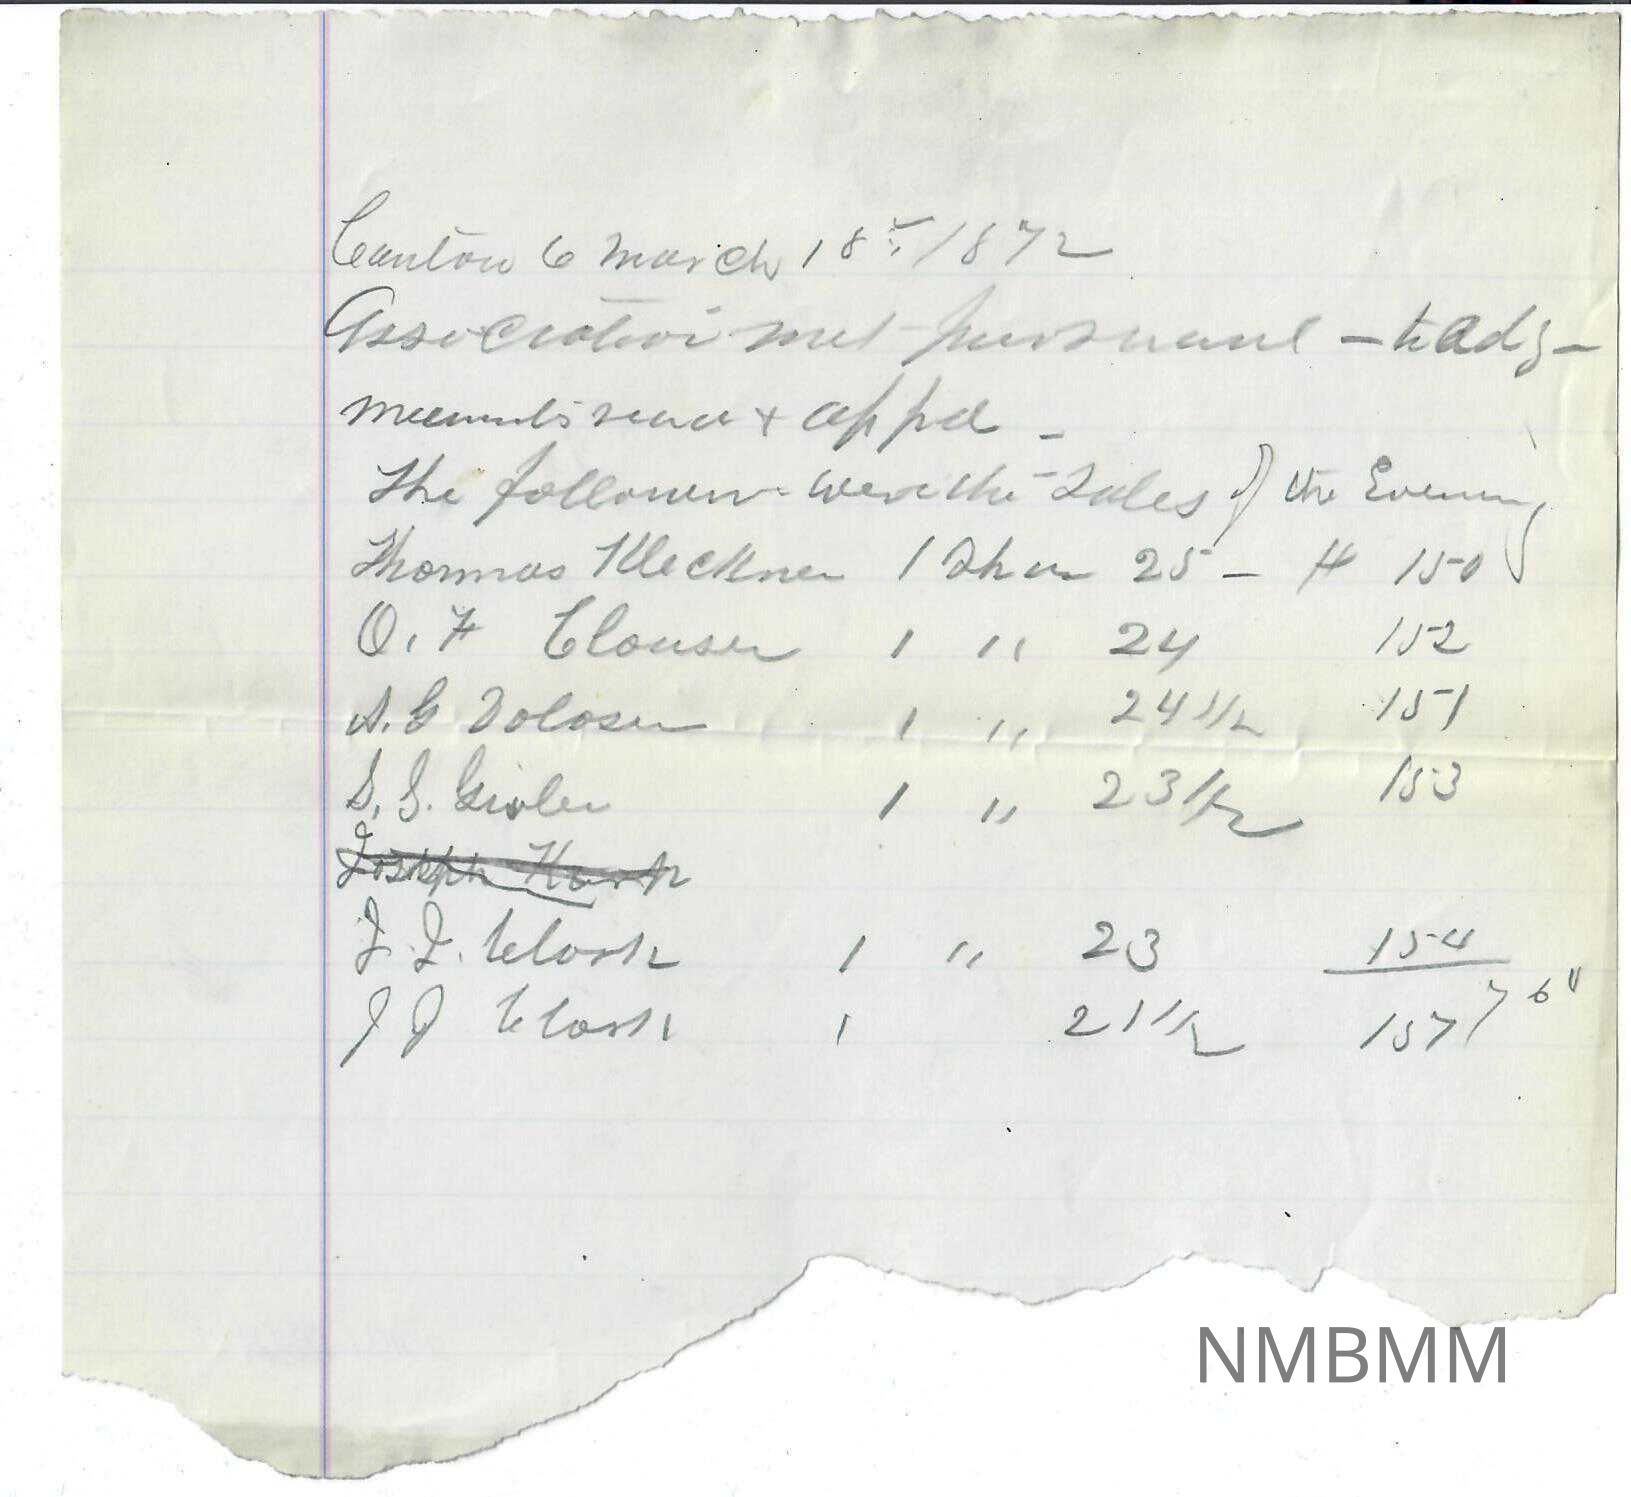 Canton O March 18th/1872
Association met pursuant - to adj -
minutes read + appd -
The following were the Sales of the Evening
Thomas Kleckner 1 Share 25 - # 150
O. F Clouser 1 " 24 152
A. G 1 " 24 1/2 151
S. S. 1 " 23 1/2 153
Joseph
J. J. Clark 1 " 23 154
J J Clark 1 21 1/2 157
NMBMM